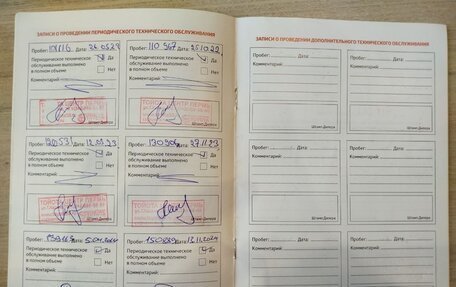 ЗАПИСИ О ПРОВЕДЕНИИ ПЕРИОДИЧЕСКОГО ТЕХНИЧЕСКОГО ОБСЛУЖИВАНИЯ
Пробег: Дата:
Периодическое техническое Да
обслуживание выполнено
в полном объеме Нет
Комментарий:
ТОЙОТА ЦЕНТР ПЕРМЬ
Штамп Дилера
Пробег: 110 967 Дата: 25.10.22
Периодическое техническое Да
обслуживание выполнено
в полном объеме Нет
Комментарий:
ТОЙОТА ЦЕНТР ПЕРМЬ
Штамп Дилера
Пробег: Дата:
Периодическое техническое Да
обслуживание выполнено
в полном объеме Нет
Комментарий:
ТОЙОТА ЦЕНТР ПЕРМЬ
Пробег: Дата: 27.11.23
Периодическое техническое Да
обслуживание выполнено
в полном объеме Нет
Комментарий:
ТОЙОТА ЦЕНТР ПЕРМЬ
Штамп Дилера
Пробег: Дата:
Периодическое техническое Да
обслуживание выполнено
в полном объеме Нет
Комментарий:
Пробег: Дата: 12.11.2024
Периодическое техническое Да
обслуживание выполнено
в полном объеме Нет
Комментарий:
ЗАПИСИ О ПРОВЕДЕНИИ ДОПОЛНИТЕЛЬНОГО ТЕХНИЧЕСКОГО ОБСЛУЖИВАНИЯ
Пробег: Дата:
Комментарий:
Штамп Дилера
Пробег: Дата:
Комментарий:
Штамп Дилера
Пробег: Дата:
Комментарий:
Штамп Дилера
Пробег: Дата:
Комментарий:
Штамп Дилера
Пробег: Дата:
Комментарий:
Пробег: Дата:
Комментарий: